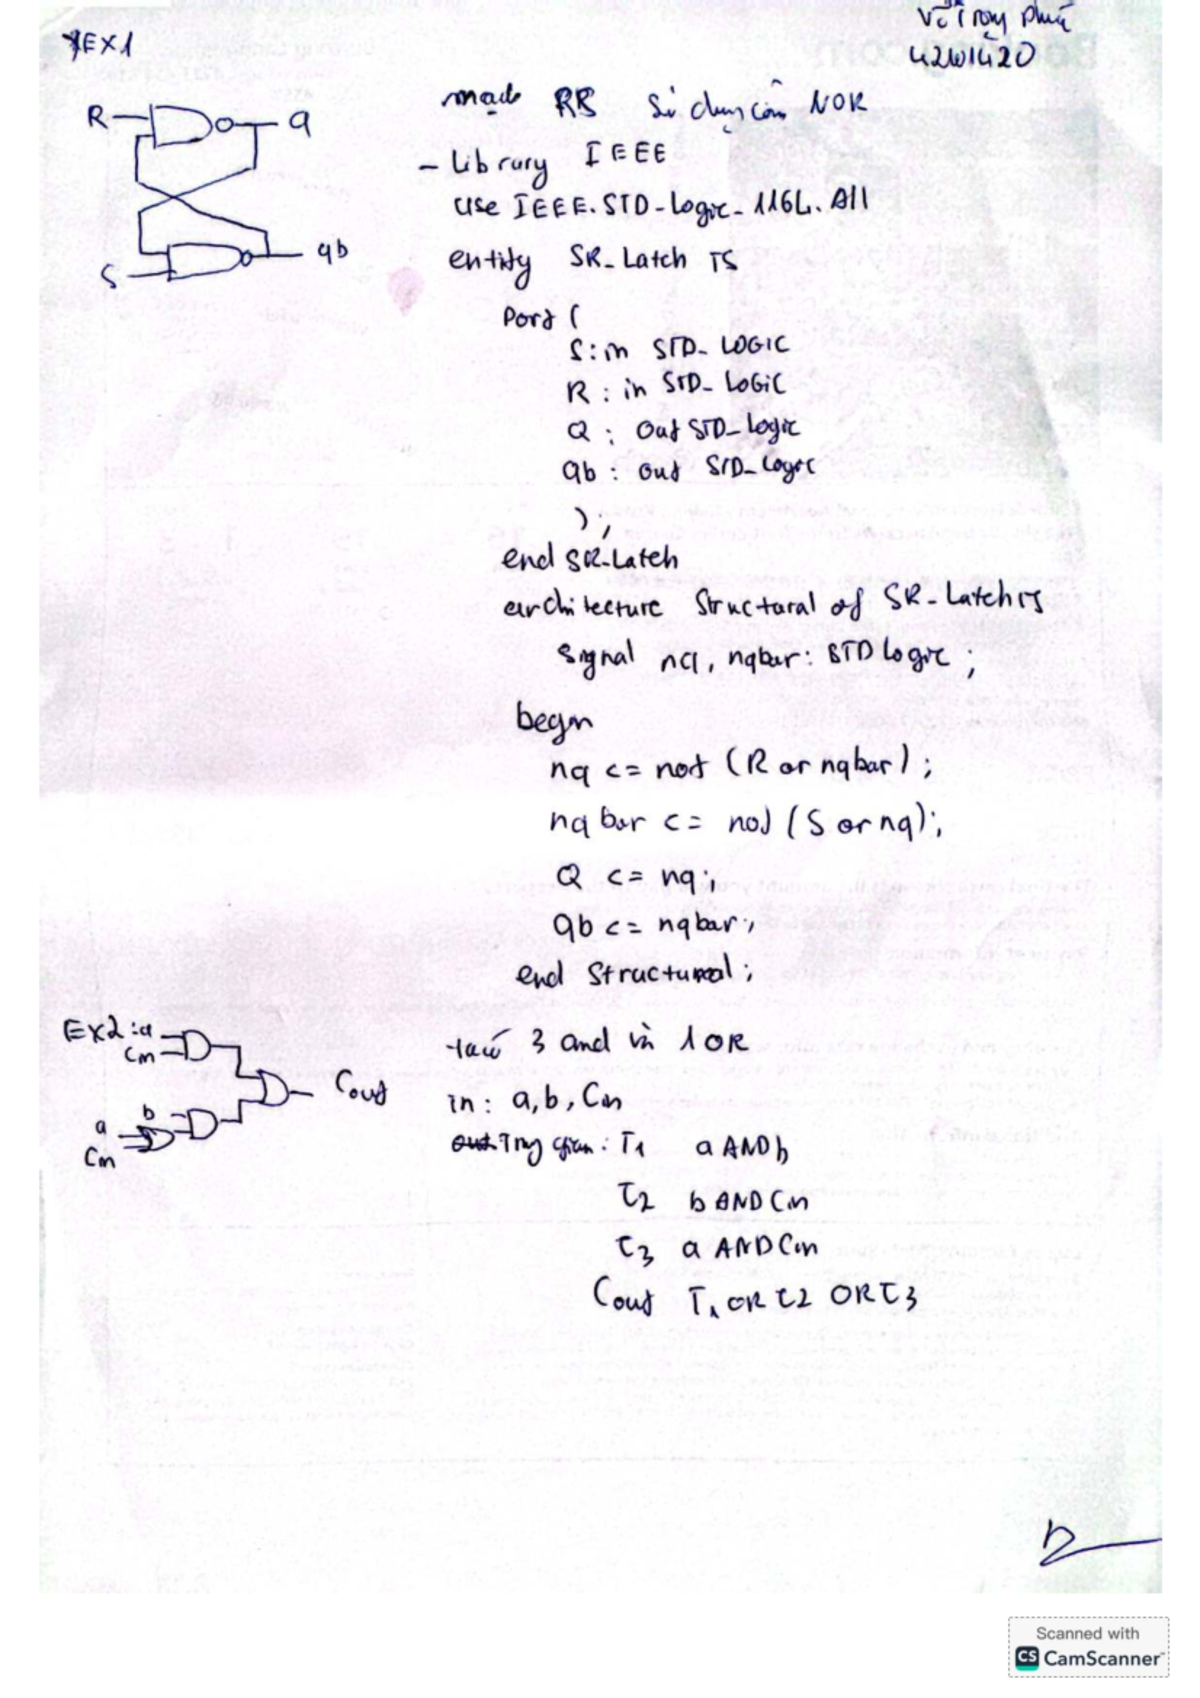 Võ Trọng Phúc
EX1
R
q
S
qb
mạch RS Sử dụng cổng NOR
- Library IEEE
use IEEE.STD-Logic-1164.All
entity SR-Latch is
Port (
S: in STD-LOGIC
R : in STD-LOGIC
Q : Out STD-Logic
qb : out STD-Logic
);
end SR-Latch
architecture Structural of SR-Latch is
Signal nq, nqbar: STD Logic ;
begin
nq <= not (R or nqbar) ;
nqbar <= not (S or nq);
Q <= nq ;
qb <= nqbar ;
end Structural ;
EX2 : a
Cin
Cout
b
a
Cin
3 and và 1 OR
in : a, b, Cin
out Trung gian : T1 a AND b
T2 b AND Cin
T3 a AND Cin
Cout T1 OR T2 OR T3
Scanned with
CS CamScanner